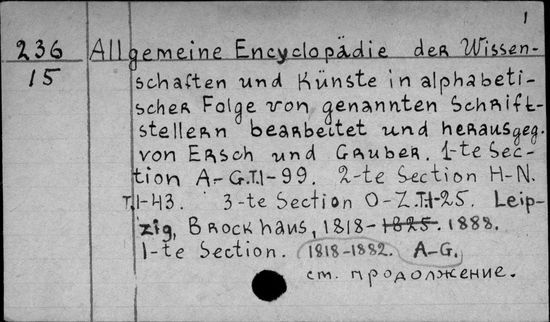 1
236 Allgemeine Encyclopädie der Wissen-
15 schaften und Künste in alphabeti-
scher Folge von genannten Schrift-
stellern bearbeitet und herausgeg.
von Ersch und Gruber. 1-te Sec-
tion A-G.T.1-99. 2-te Section H-N.
T.1-43. 3-te Section O-Z.T.1-25. Leip-
zig, Brockhaus, 1818-1825. 1888.
1-te Section. 1818-1882. A-G.
см. продолжение.